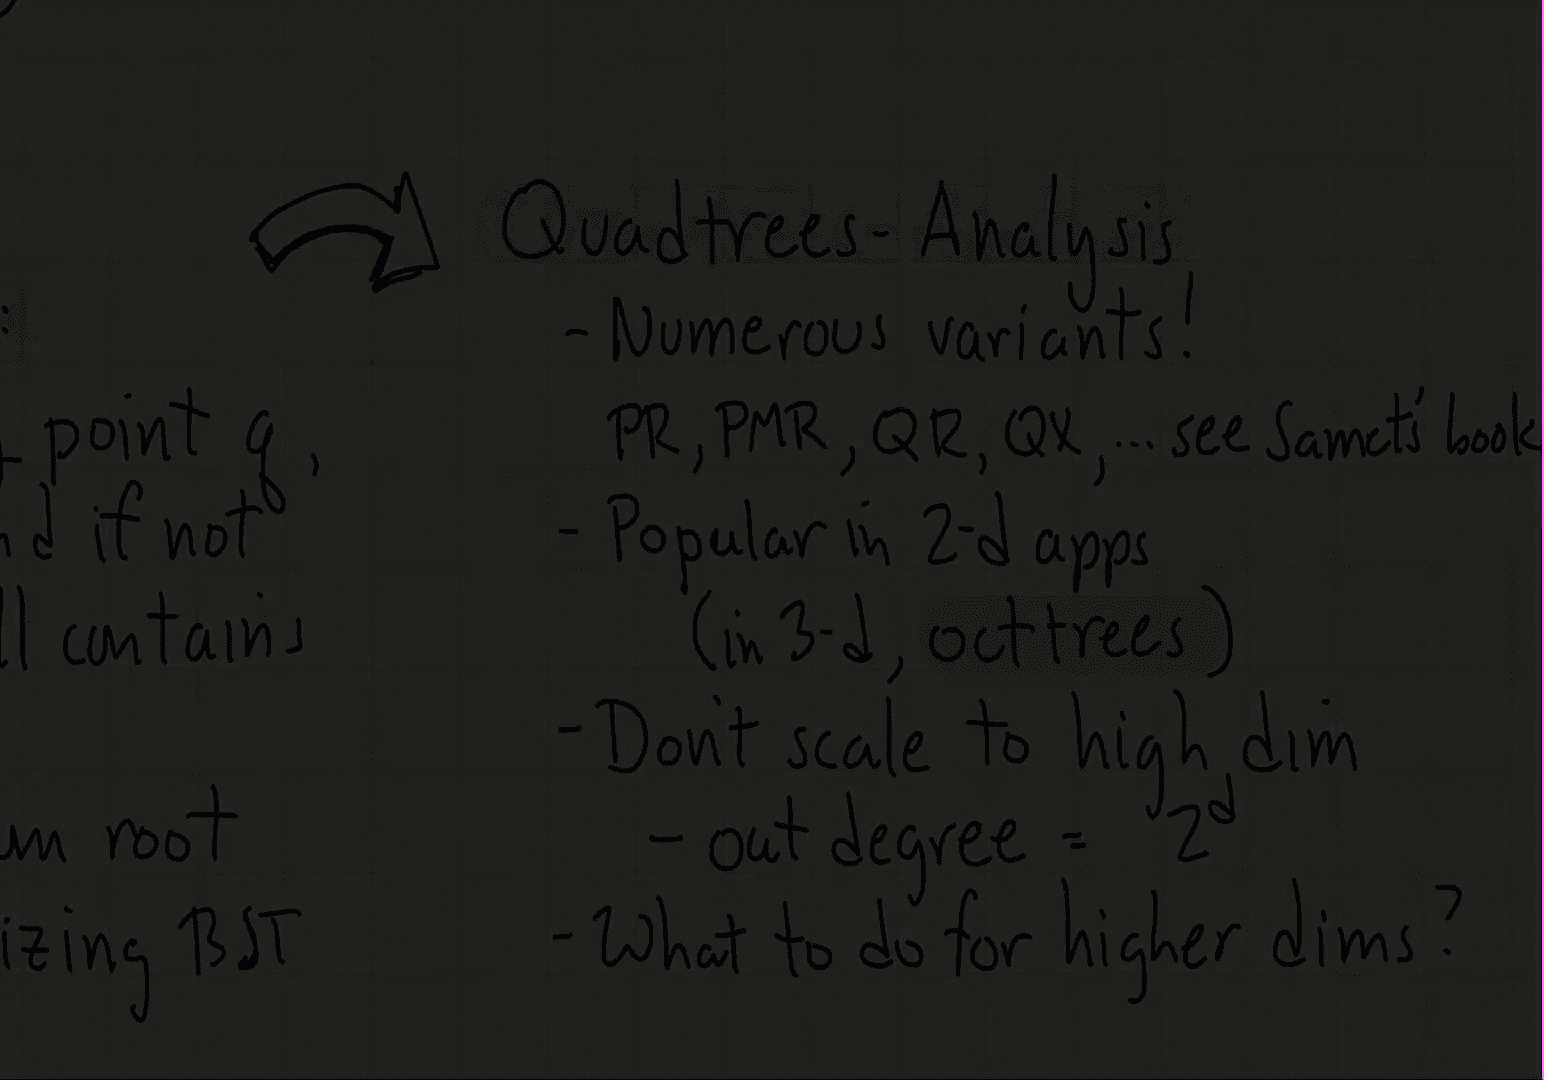 :
point q,
if not
contains
root
izing BST
Quadtrees- Analysis
- Numerous variants!
PR, PMR, QR, QX, ... see Samet's book
- Popular in 2-d apps
(in 3-d, octtrees)
- Don't scale to high dim
- out degree = 2^d
- What to do for higher dims?